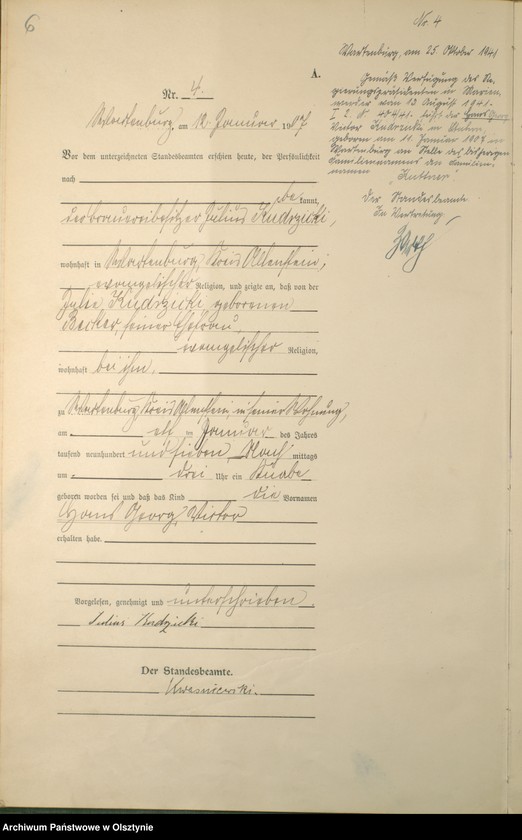 6
Nr. 4
Wartenburg, am 25. Oktober 1941
Gemäß Verfügung des Re-
gierungspräsidenten in Marien-
werder vom 13 August 1941 -
führt der Hans Georg
Victor Kudrzicki in
am 11. Januar 1907 in
Wartenburg an Stelle des bisherigen
Familiennamens den Familien-
namen
Der Standesbeamte.
In Vertretung
A.
Nr. 4.
Wartenburg, am 12. Januar 1907
Vor dem unterzeichneten Standesbeamten erschien heute, der Persönlichkeit
nach
be kannt,
der Brauereibesitzer Julius Kudrzicki,
wohnhaft in Wartenburg, Kreis Allenstein,
evangelischer Religion, und zeigte an, daß von der
Kudrzicki, geborenen
Becker, seiner Ehefrau,
evangelischer Religion,
wohnhaft bei ihm.
zu Wartenburg, Kreis Allenstein, in seiner Wohnung,
am elf ten Januar des Jahres
tausend neunhundert und sieben, Nach mittags
um drei Uhr ein Knabe
geboren worden sei und daß das Kind die Vornamen
Hans Georg Victor
erhalten habe.
Vorgelesen, genehmigt und unterschrieben.
Julius Kudrzicki
Der Standesbeamte.
Kwasniewski.
Archiwum Państwowe w Olsztynie